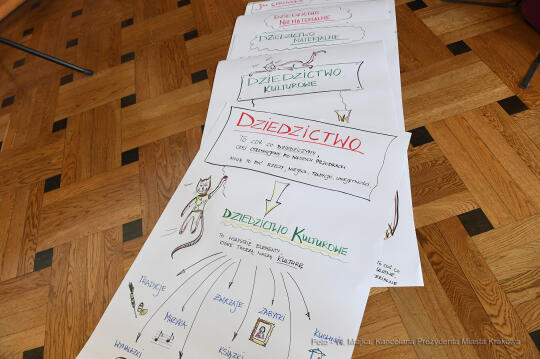 DZIEDZICTWO
NIEMATERIALNE
DZIEDZICTWO
MATERIALNE
DZIEDZICTWO
KULTUROWE
DZIEDZICTWO
TO COŚ CO DZIEDZICZYMY,
CZYLI OTRZYMUJEMY PO NASZYCH PRZODKACH
MOGĄ TO BYĆ RZECZY, MIEJSCA, TRADYCJE, UMIEJĘTNOŚCI
DZIEDZICTWO KULTUROWE
TO WSZYSTKIE ELEMENTY
KTÓRE TWORZĄ NASZĄ KULTURĘ
TRADYCJE
ZWYCZAJE
ZABYTKI
MUZYKA
KUCHNIA
WYNALAZKI
KSIĄŻKI
TO COŚ, CO
Fot. W. Majka, Kancelaria Prezydenta Miasta Krakowa